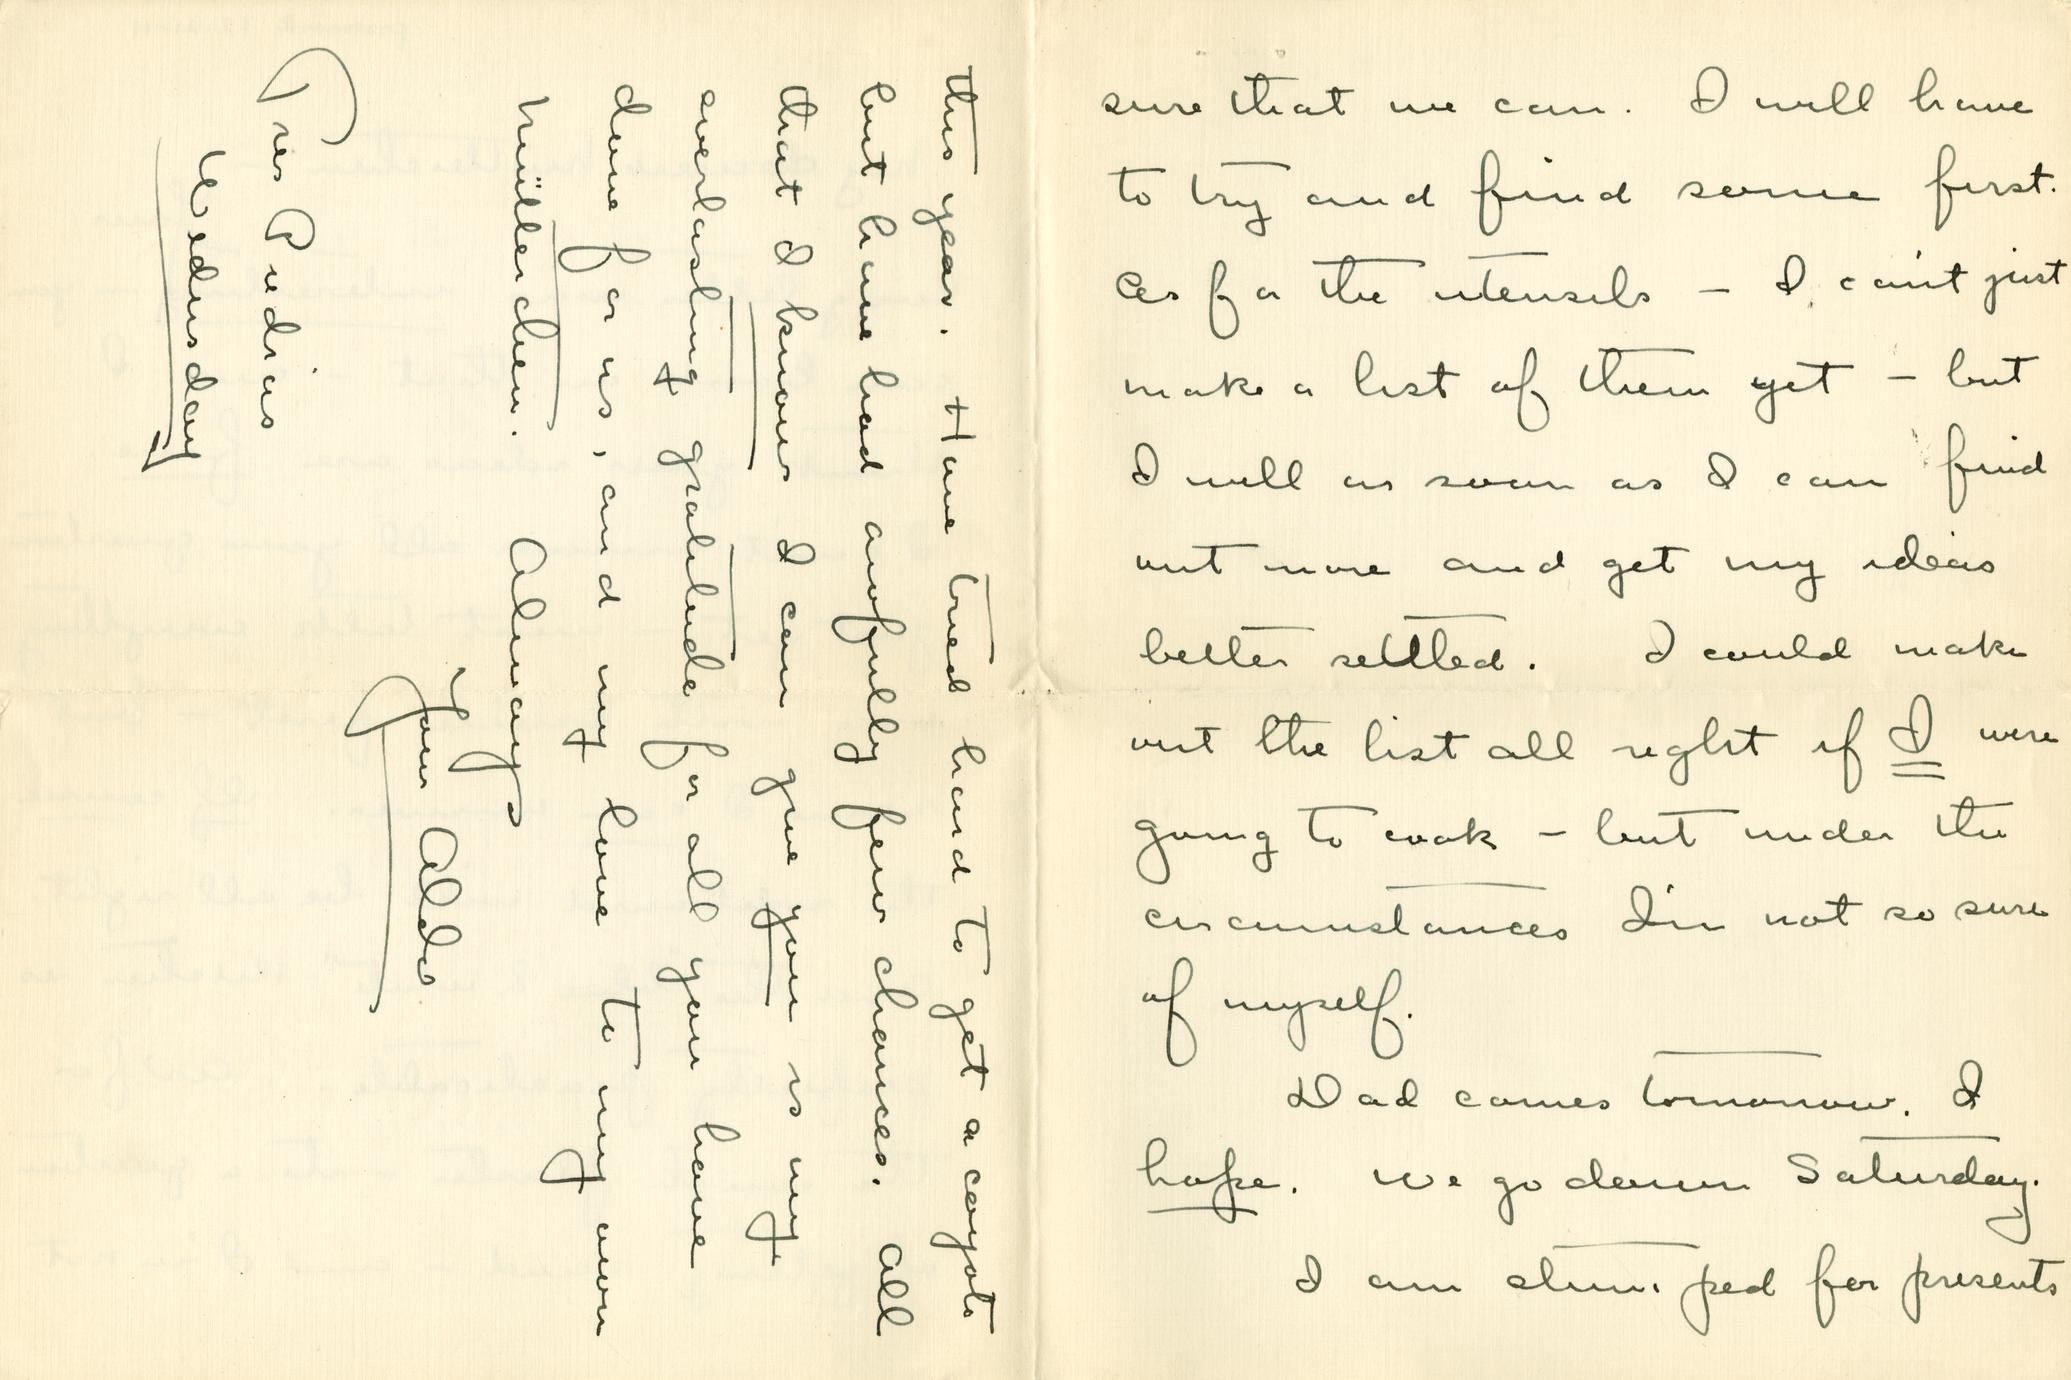 sure that we can. I will have
to try and find some first.
As for the utensils – I can't just
make a list of them yet – but
I will as soon as I can find
out more and get my ideas
better settled. I could make
out the list all right if I were
going to cook – but under the
circumstances I'm not so sure
of myself.
Dad comes tomorrow. I
hope. We go down Saturday.
I am stumped for presents
this year. Have tried hard to get a coyote
but have had awfully few chances. All
that I know I can give you is my
everlasting gratitude for all you have
done for us, and my love to my own
Mütterchen. Always
Your Aldo
Tres Piedras
Wednesday